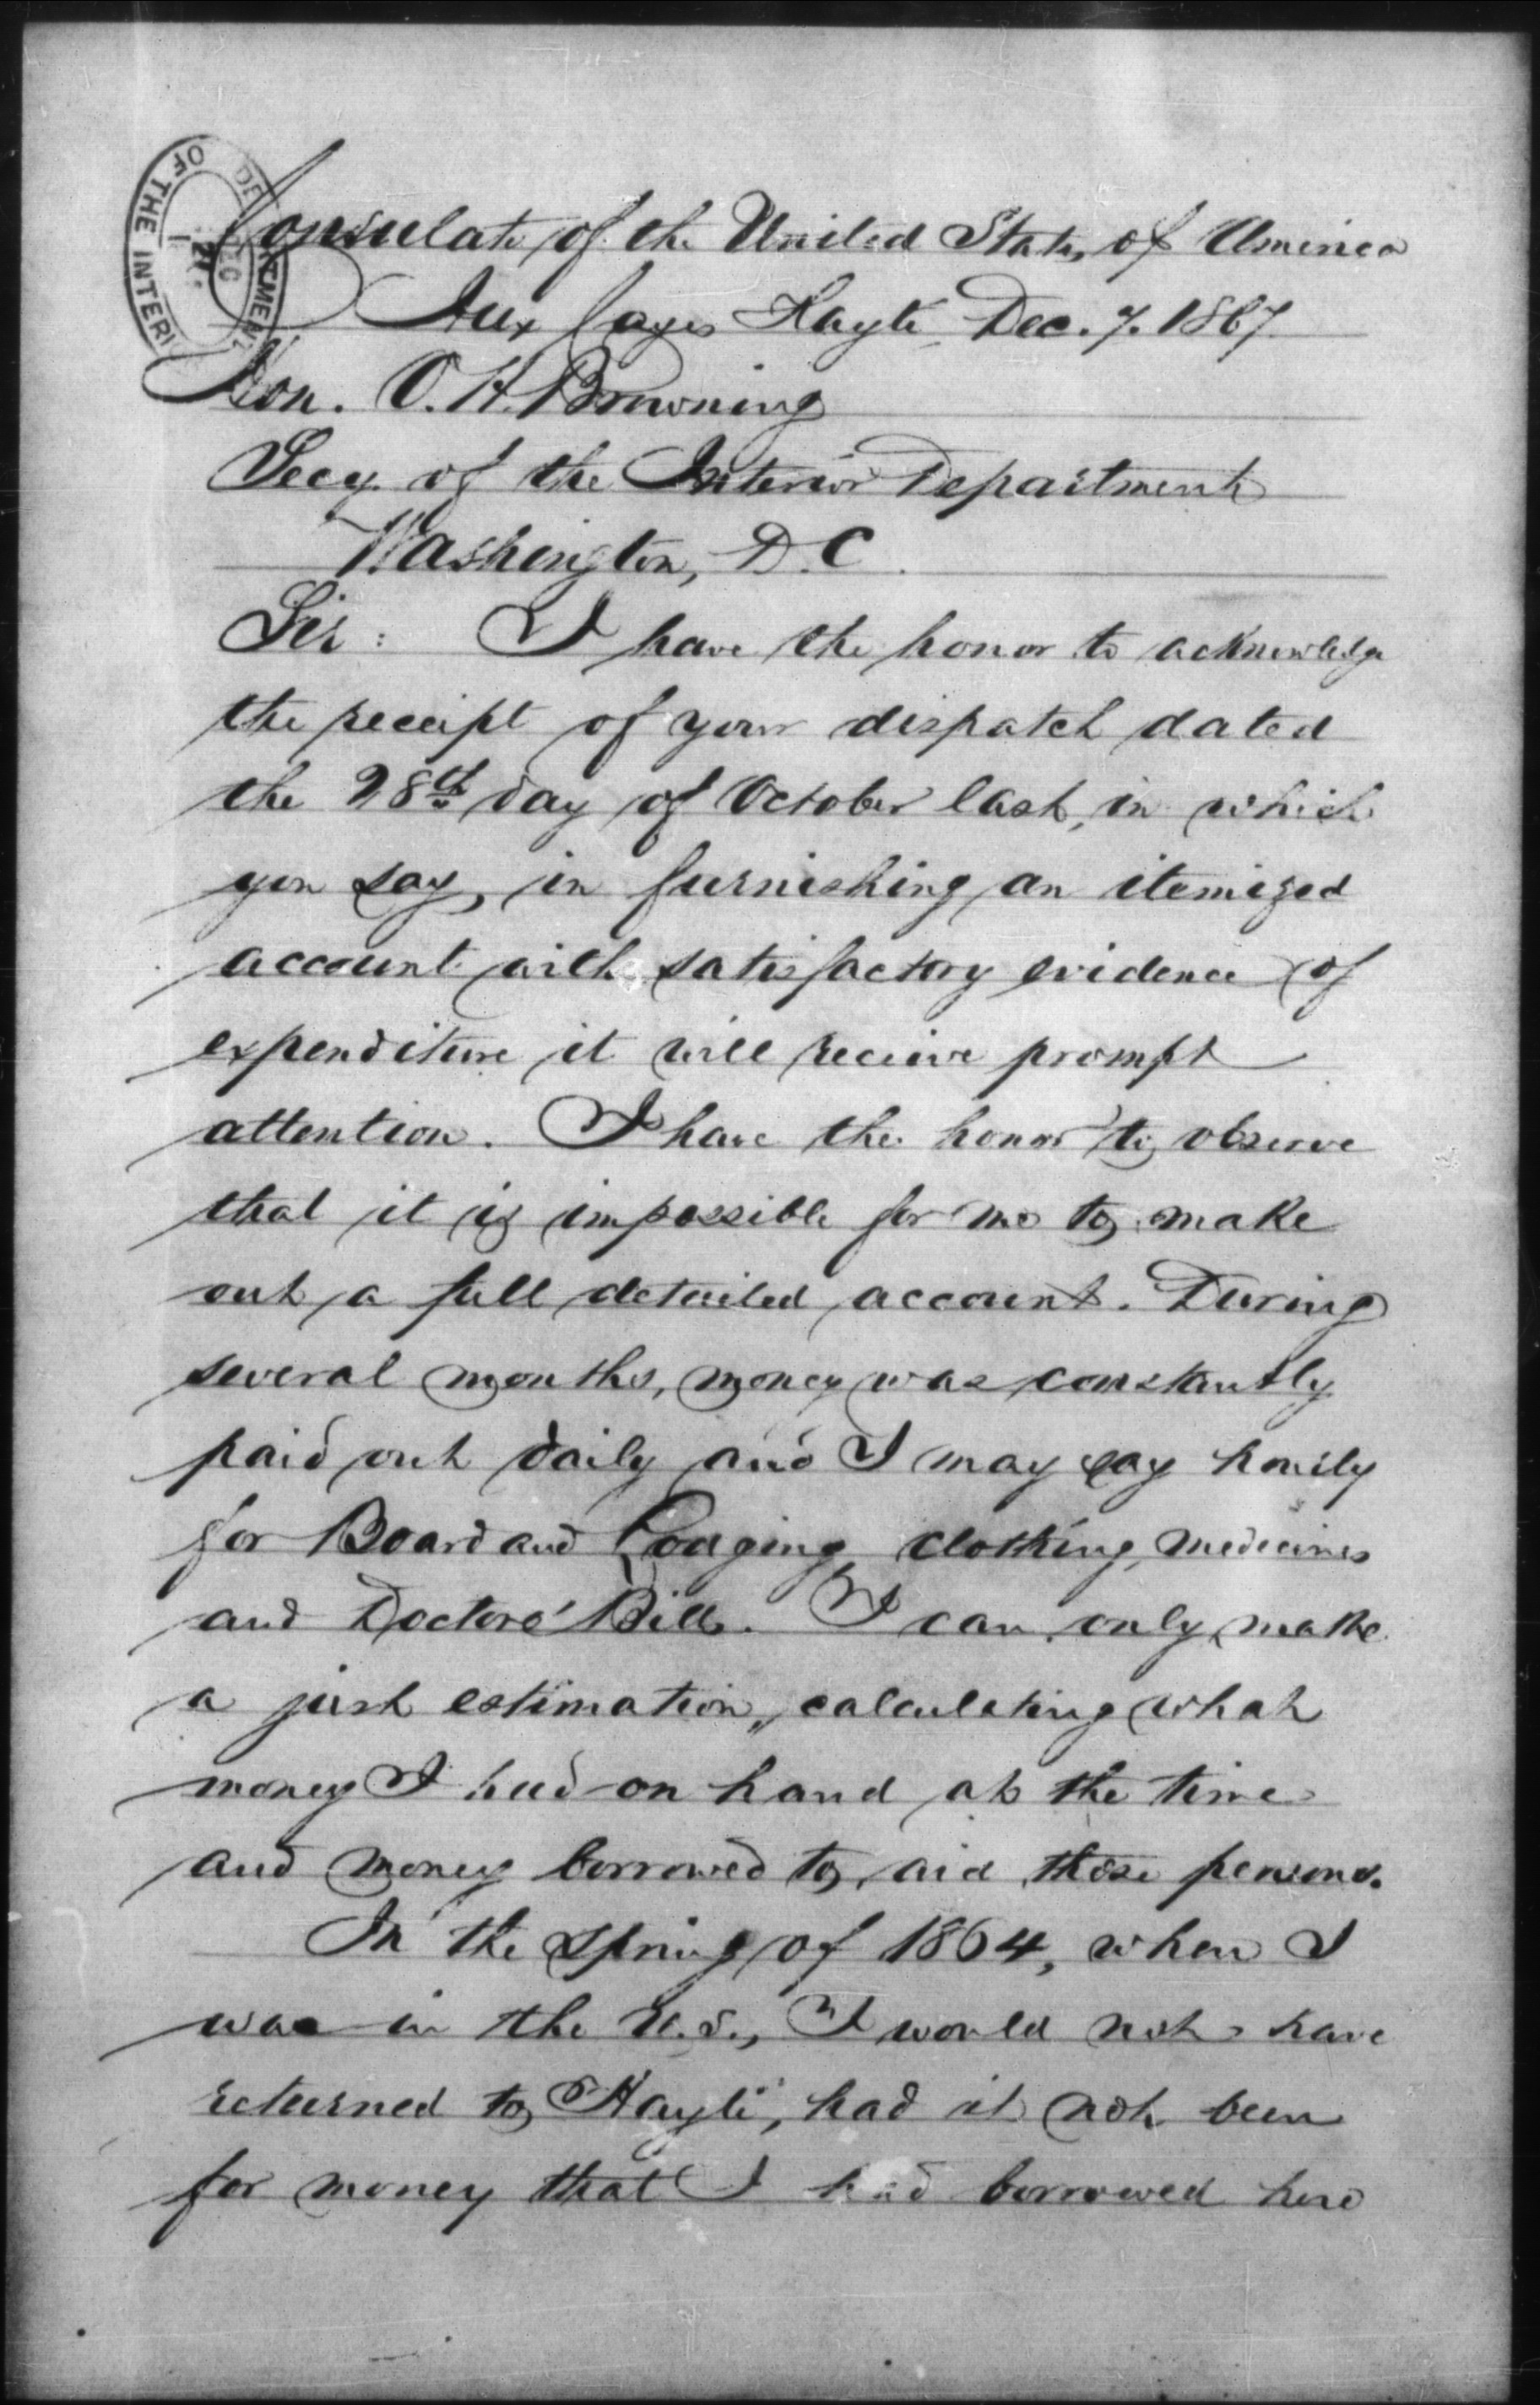 DEPARTMENT
OF THE INTERI
DEC
Consulate of the United States of America
Aux Cayes Hayti, Dec. 7. 1867.
Hon. O. H. Browning
Secy. of the Interior Department
Washington, D.C.
Sir: I have the honor to acknowledge
the receipt of your dispatch dated
the 28th day of October last, in which
you say, in furnishing an itemized
account with satisfactory evidence of
expenditure it will receive prompt
attention. I have the honor to observe
that it is impossible for me to make
out a full detailed account. During
several months, money was constantly
paid out daily and I may say hourly
for Board and Lodging, clothing, medicines
and Doctors' Bills. I can only make
a just estimation, calculating what
money I had on hand at the time
and money borrowed to aid those persons.
In the Spring of 1864, when I
was in the U.S., I would not have
returned to Hayti, had it not been
for money that I had borrowed here